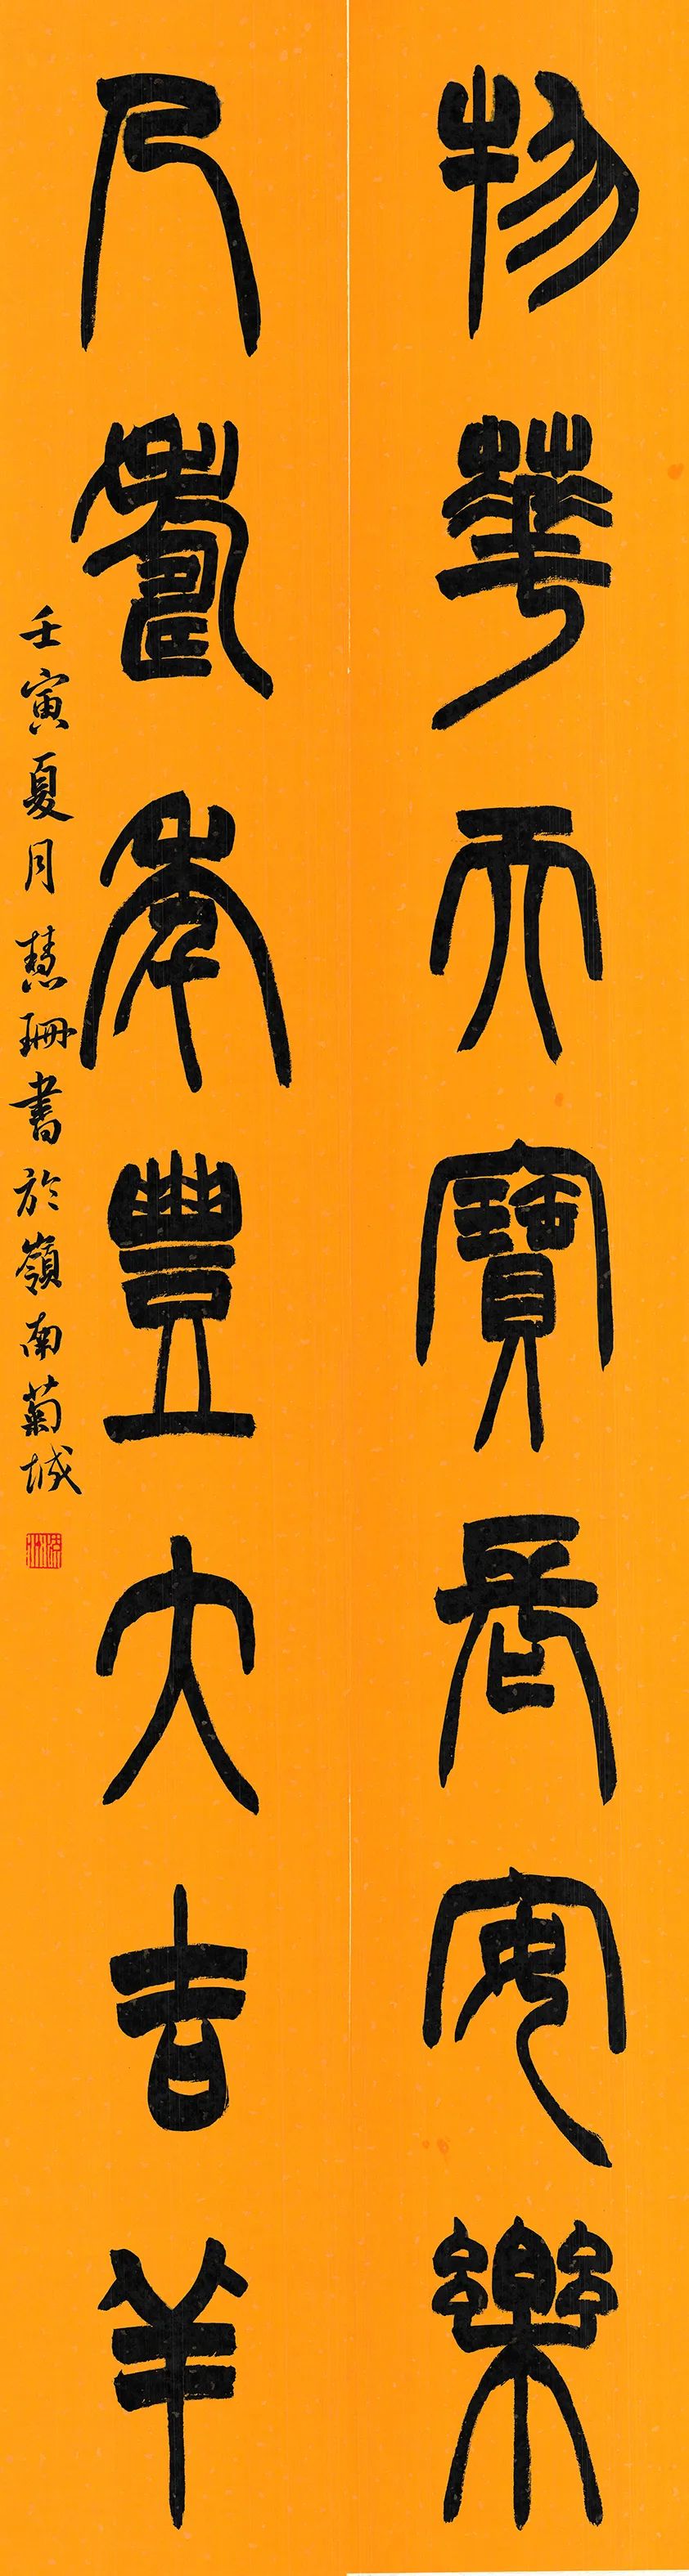 物華天寶長安樂
人壽年豐大吉羊
壬寅夏月慧珊書於嶺南菊城